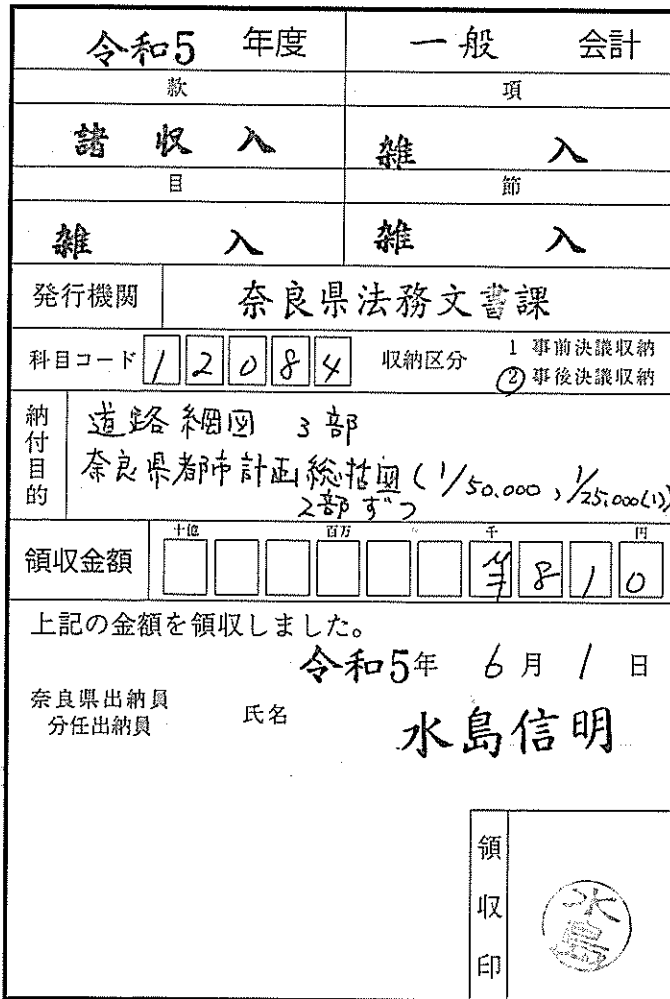 令和5 年度 一般 会計
款 項
諸収入 雑入
目 節
雑入 雑入
発行機関 奈良県法務文書課
科目コード 12084 収納区分 1 事前決議収納
② 事後決議収納
納付目的
道路網図 3部
奈良県都市計画総括図(1/50,000, 1/25,000(1))
2部ずつ
十億 百万 千 円
領収金額 ¥810
上記の金額を領収しました。
令和5年 6月 1日
奈良県出納員
分任出納員 氏名 水島信明
領収印 水島